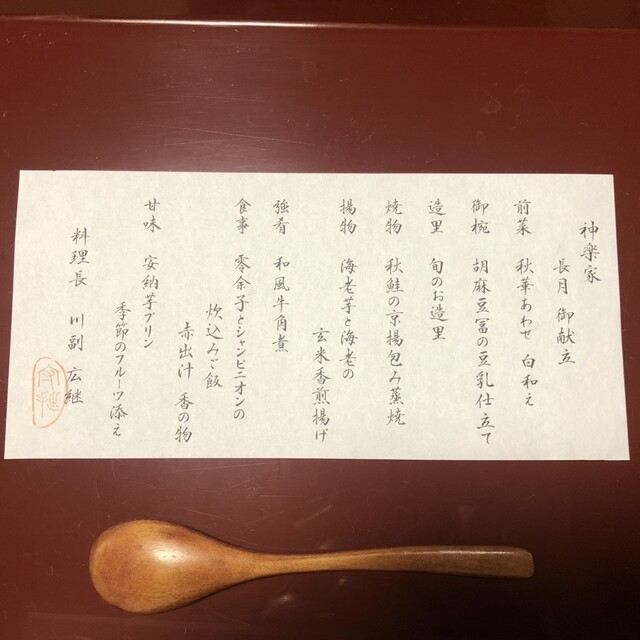 神楽家
長月 御献立
前菜 秋華あわせ 白和え
御椀 胡麻豆冨の豆乳仕立て
造里 旬のお造里
焼物 秋鮭の京揚包み蒸焼
揚物 海老芋と海老の
玄米香煎揚げ
強肴 和風牛角煮
食事 零余子とシャンピニオンの
炊込みご飯
赤出汁 香の物
甘味 安納芋プリン
季節のフルーツ添え
料理長 川副 宏継